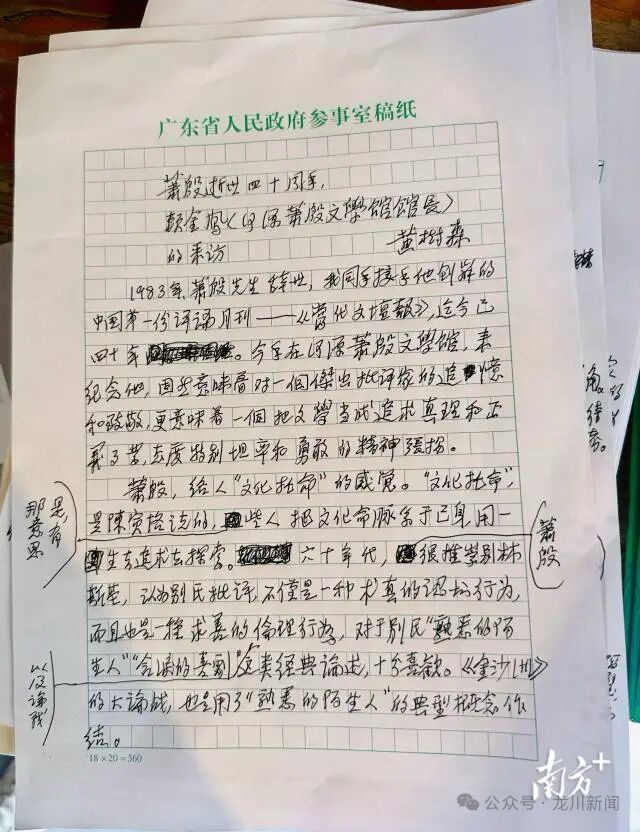 广东省人民政府参事室稿纸
萧殷逝世四十周年,
赖金凤《河源萧殷文學馆馆長》
的来访
黄樹森
1983年萧殷先生辞世,我同手接手他创辦的
中国第一份评论月刊——《當代文壇報》,迄今已
四十年。今年在河源萧殷文學館,来
纪念他,固然意味着对一個傑出批评家的追憶
和致敬,更意味着一個把文學当成追求真理和正
義了,态度特别坦率和勇敢的精神張揚。
萧殷,给人“文化托命”的感觉。“文化托命”,
是陳寅恪说的,些人把文化命脉系于己身,用一
生去追求去探索。六十年代,很推崇别林
斯基,认为别氏批评,不僅是一种求真的认知行为,
而且也是一種求善的倫理行为,对于别氏“熟悉的陌
生人”“含淚的喜劇”这类经典论述,十分喜歡。《金沙洲》
的大論战,也是用了“熟悉的陌生人”的典型概念作
结。
是有
那意思
萧殷
以及論战
18×20=360
南方+
公众号·龙川新闻